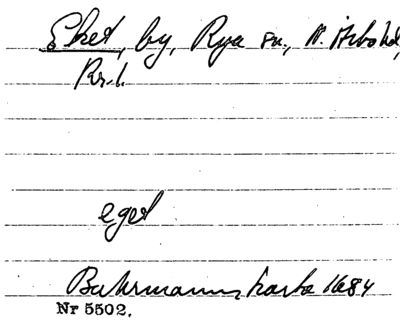 Eket, by, Rya sn., N. Åsbo hd,
Kr. l.
eget
Buhrmanns karta 1684
Nr 5502.